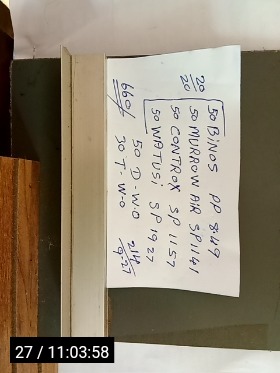 20
20
50 BiNOS PP 849
50 MURROW AIR SP1141
50 CONTROX SP 1157
50 WATUSi SP1927
50 D-W.O
20 T-W-O
660/
27 / 11:03:58